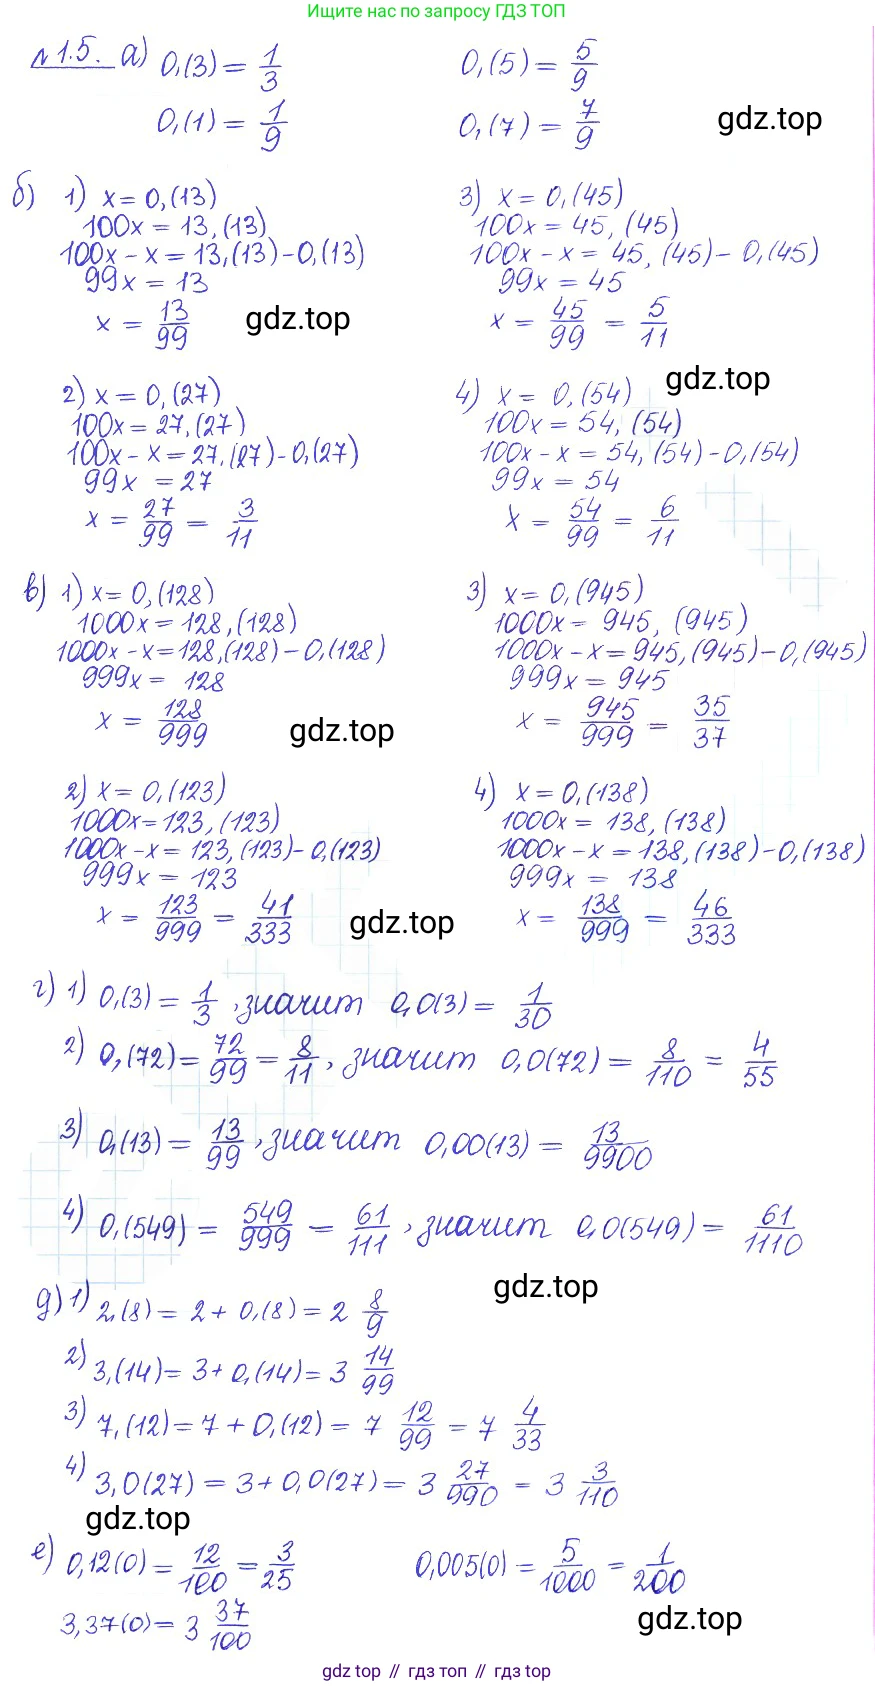 Ищите нас по запросу ГДЗ ТОП
№1.5. а) 0,(3) = 1/3    0,(5) = 5/9
0,(1) = 1/9    0,(7) = 7/9
gdz.top
б) 1) x = 0,(13)
100x = 13,(13)
100x - x = 13,(13) - 0,(13)
99x = 13
x = 13/99
gdz.top
3) x = 0,(45)
100x = 45,(45)
100x - x = 45,(45) - 0,(45)
99x = 45
x = 45/99 = 5/11
2) x = 0,(27)
100x = 27,(27)
100x - x = 27,(27) - 0,(27)
99x = 27
x = 27/99 = 3/11
gdz.top
4) x = 0,(54)
100x = 54,(54)
100x - x = 54,(54) - 0,(54)
99x = 54
x = 54/99 = 6/11
в) 1) x = 0,(128)
1000x = 128,(128)
1000x - x = 128,(128) - 0,(128)
999x = 128
x = 128/999
gdz.top
3) x = 0,(945)
1000x = 945,(945)
1000x - x = 945,(945) - 0,(945)
999x = 945
x = 945/999 = 35/37
2) x = 0,(123)
1000x = 123,(123)
1000x - x = 123,(123) - 0,(123)
999x = 123
x = 123/999 = 41/333
gdz.top
4) x = 0,(138)
1000x = 138,(138)
1000x - x = 138,(138) - 0,(138)
999x = 138
x = 138/999 = 46/333
г) 1) 0,(3) = 1/3, значит 0,0(3) = 1/30
2) 0,(72) = 72/99 = 8/11, значит 0,0(72) = 8/110 = 4/55
3) 0,(13) = 13/99, значит 0,00(13) = 13/9900
4) 0,(549) = 549/999 = 61/111, значит 0,0(549) = 61/1110
gdz.top
д) 1) 2,(8) = 2 + 0,(8) = 2 8/9
2) 3,(14) = 3 + 0,(14) = 3 14/99
3) 7,(12) = 7 + 0,(12) = 7 12/99 = 7 4/33
4) 3,0(27) = 3 + 0,0(27) = 3 27/990 = 3 3/110
gdz.top
е) 0,12(0) = 12/100 = 3/25    0,005(0) = 5/1000 = 1/200
3,37(0) = 3 37/100
gdz.top
gdz top // гдз топ // gdz top